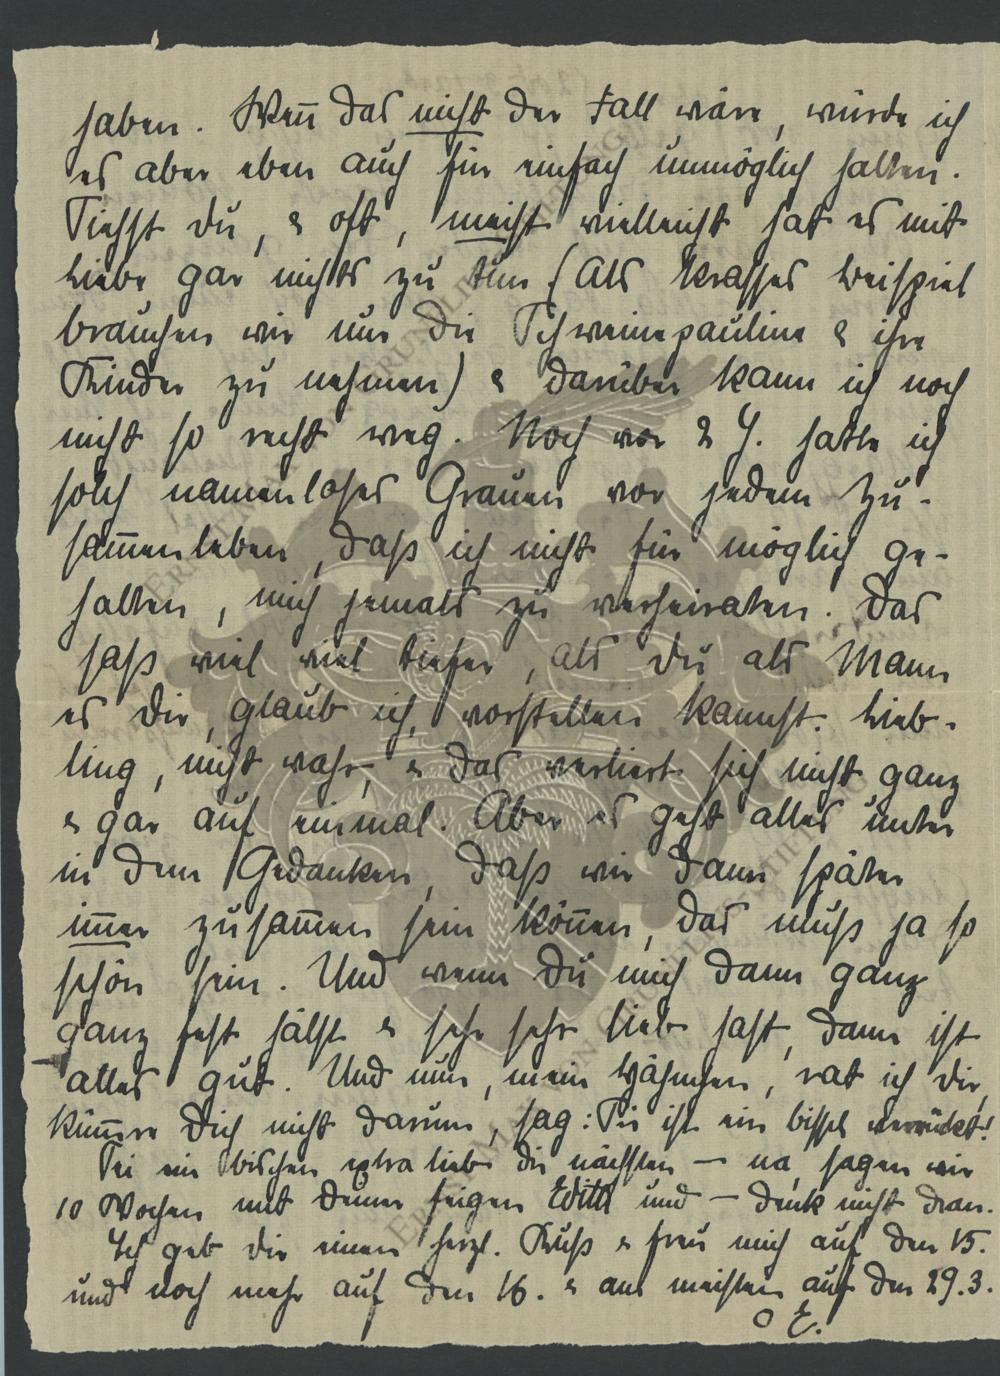 haben. Wen̅ das nicht der Fall wäre, würde ich
es aber eben auch für einfach unmöglich halten.
Siehst du, & oft, meist vielleicht hat es mit
Liebe gar nichts zu tun (Als krasses Beispiel
brauchen wir nur die Schweinepauline & ihre
Kinder zu nehmen) & darüber kann ich noch
nicht so recht weg. Noch vor 2 J. hatte ich
solch namenloses Grauen vor jedem Zu-
sam̅enleben, daß ich nicht für möglich ge-
halten, mich jemals zu verheiraten. Das
saß viel viel tiefer, als du als Mann
es dir, glaub ich, vorstellen kannst. Lieb-
ling, nicht wahr, & das verliert sich nicht ganz
& gar auf einmal. Aber es geht alles unter
in dem Gedanken, daß wir dann später
im̅er zusam̅en sein kön̅en, das muß ja so
schön sein. Und wenn du mich dann ganz
ganz fest hälst & sehr sehr lieb hast, dann ist
alles gut. Und nun, mein, rat ich dir,
küm̅re Dich nicht darum, sag: Sie ist ein bissel verrückt!
Sei ein bischen extra lieb die nächsten — na, sagen wir
10 Wochen mit deiner feigen Edith und — denk nicht dran.
Ich geb dir einen herzl. Kuß & freu mich auf den 15.
und noch mehr auf den 16. & am meisten auf den 29.3.
E.